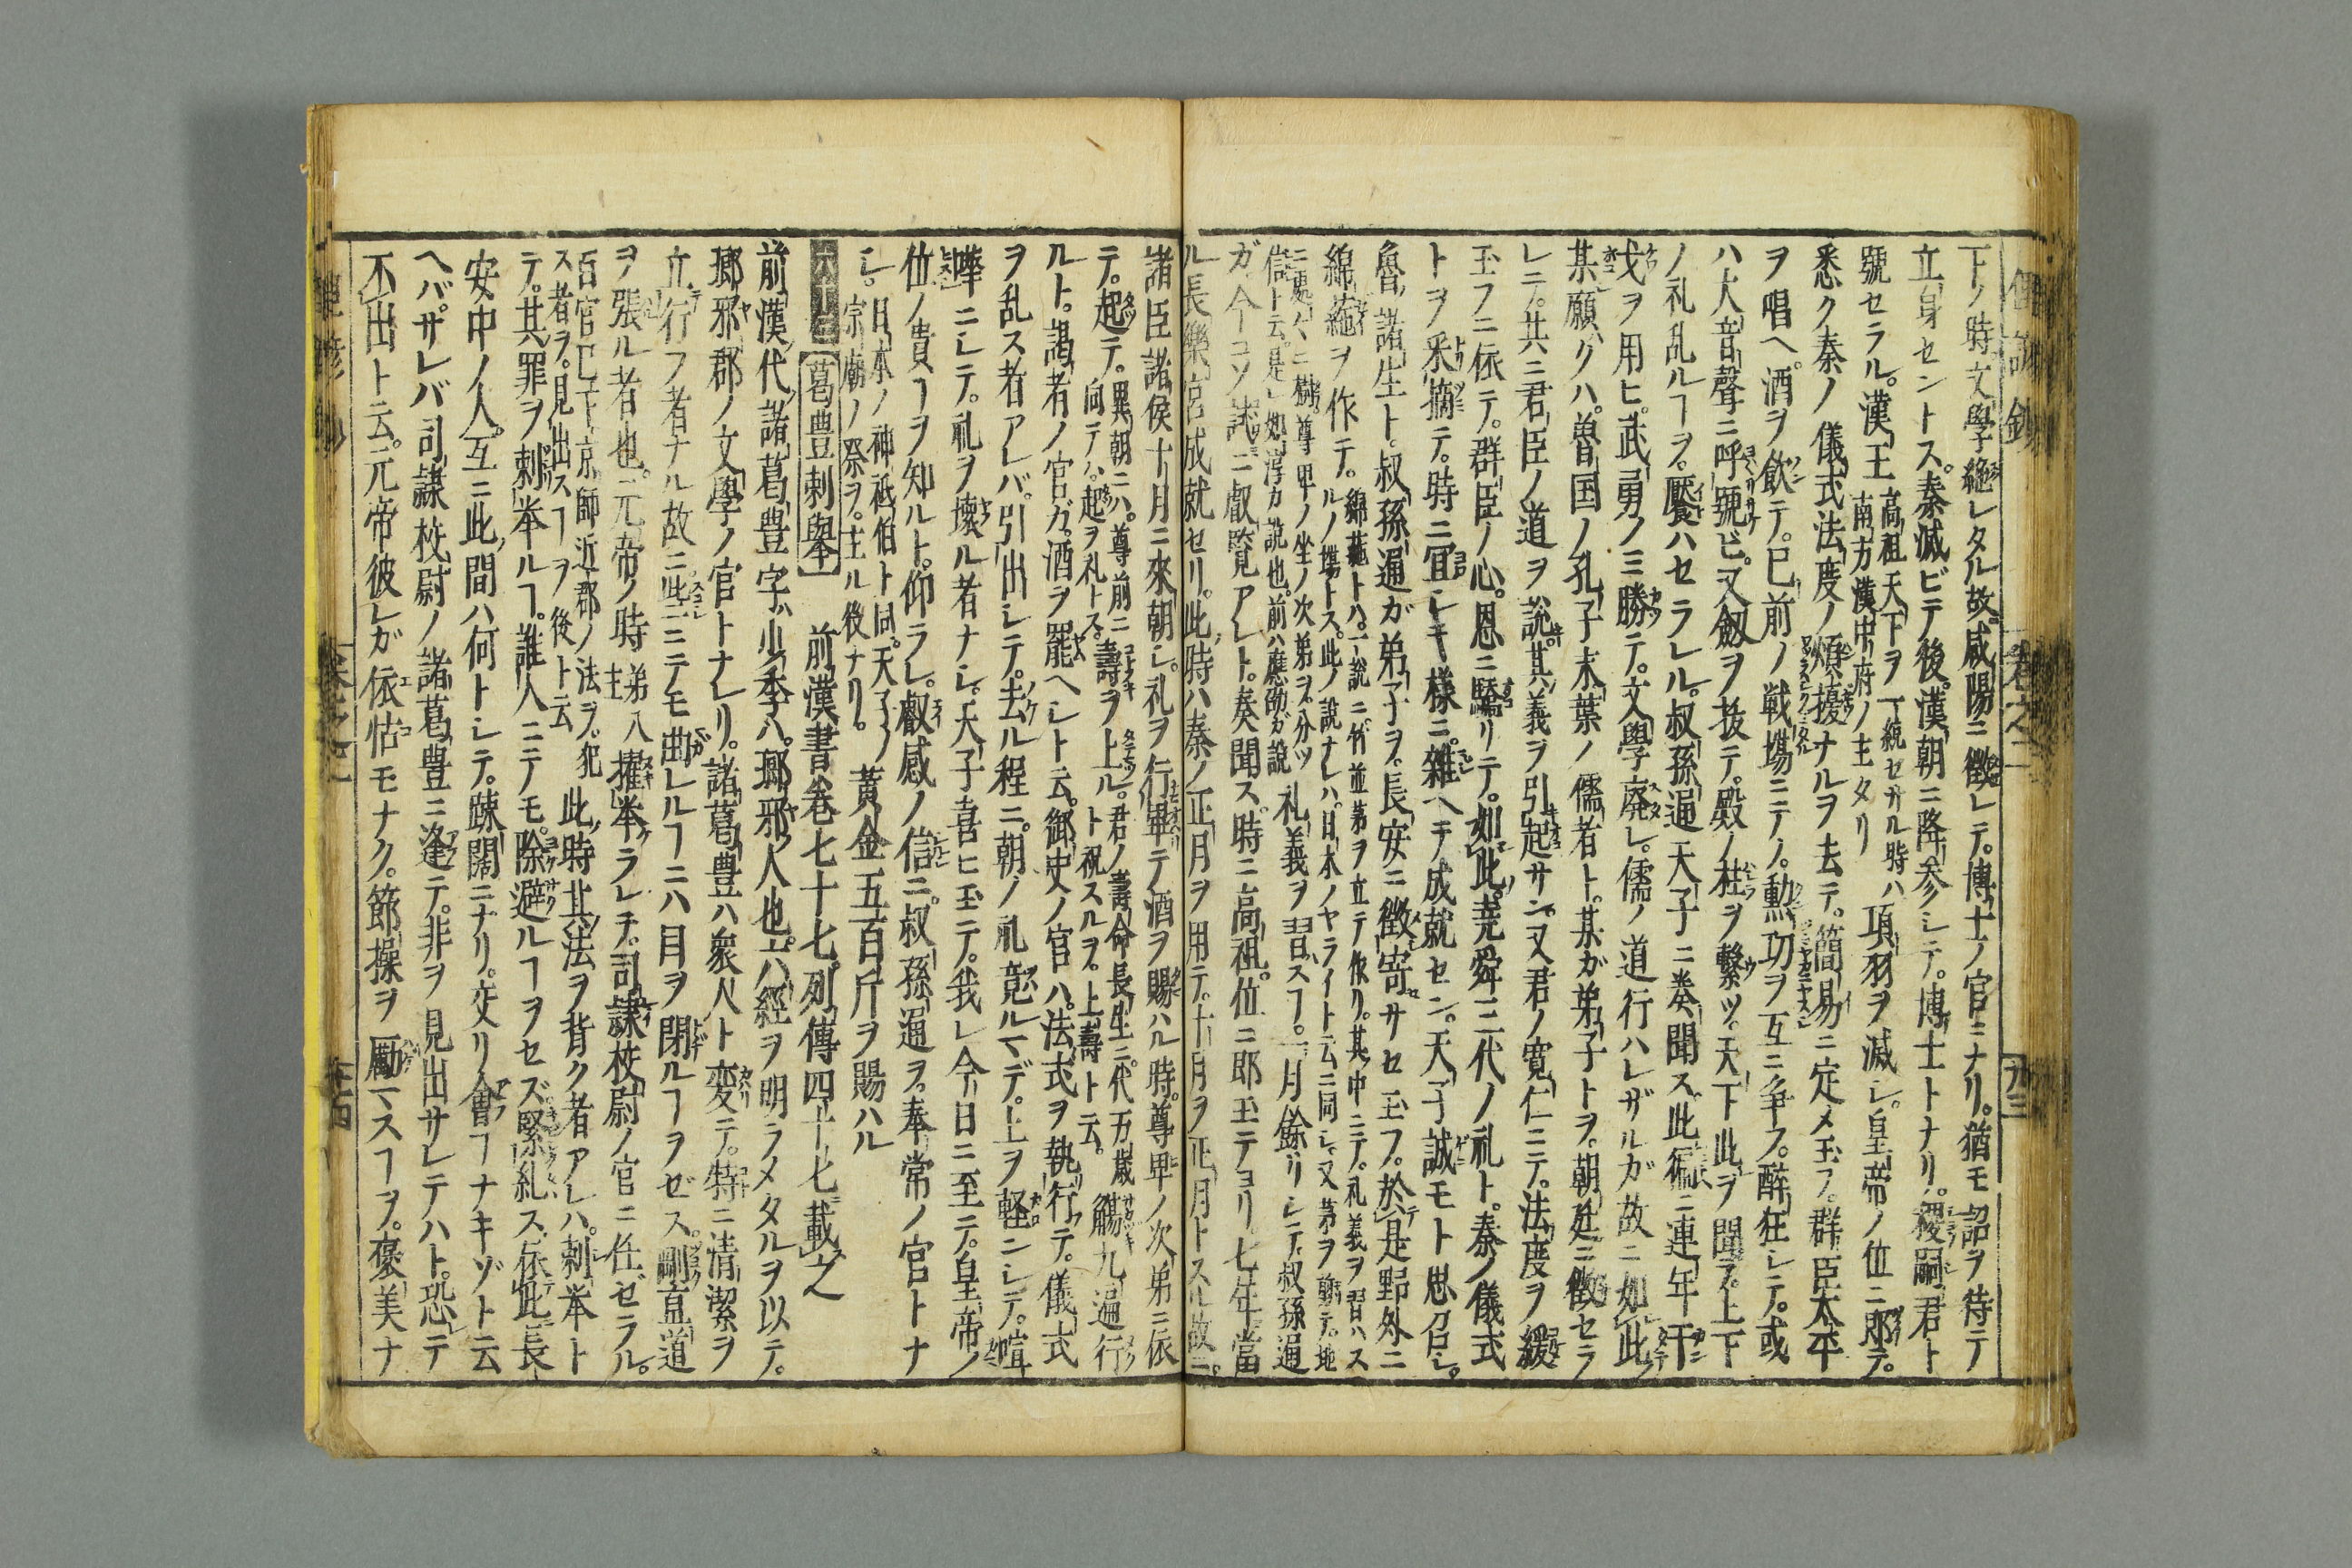 下ノ時文學絶レタル故咸陽ニ徴レテ。博士ノ官ニナリ。猶モ詔ヲ待テ
立身セントス。秦滅ビテ後。漢朝ニ降参シテ。博士トナリ。稷嗣君ト
號セラル。漢王
高祖天下ヲ一統セザル時ハ
南方漢中府ノ主タリ
項羽ヲ滅シ。皇帝ノ位ニ即テ。
悉ク秦ノ儀式法度ノ煩擾ナルヲ去テ。簡易ニ定メ玉フ。群臣太平
ヲ唱へ。酒ヲ飲テ。已前ノ戦場ニテノ。勲功ヲ互ニ争フ。醉狂シテ。或
ハ大音聲ニ呼號ビ。又劔ヲ抜テ。殿ノ柱ヲ繋ツ。天下此ヲ聞テ。上下
ノ礼乱ルヿヲ。饜ハセラレル。叔孫通天子ニ奏聞ス。此ニ連年干
戈ヲ用ヒ。武勇ノミ勝テ。文學廃レ。儒ノ道行ハレザルガ故ニ如此
某願クハ。魯国ノ孔子末葉ノ儒者ト。某ガ弟子トヲ。朝廷ニ徴セラ
レニテ。共ニ君臣ノ道ヲ説。其義ヲ引起サン。又君ノ寛仁ニテ。法度ヲ緩
玉フニ依テ。群臣ノ心。恩ニ驕リテ。如此。尭舜三代ノ礼ト。秦ノ儀式
トヲ采摘テ。時ニ宜シキ様ニ。雜ヘテ成就セン。天子誠モト思召シ。
魯ノ諸生ト。叔孫通ガ弟子ヲ。長安ニ徴寄サセ玉フ。於是野外ニ
綿蕝ヲ作テ。
綿蕝トハ。一説ニ竹並茅ヲ立テ作ク。其中ニテ。礼義ヲ習ハス
ルノ塲トス。此ノ説ナレハ。日本ノヤライト云ニ同シ。又茅ヲ翦テ。地
ニ処々ニ樹。尊卑ノ坐ノ次第ヲ分ツ
信ト云。是レ如淳カ説也。前ハ應劭カ説
礼義ヲ習ズヿ。一月餘リシテ。叔孫通
ガ。今コソ試ニ叡覧アレト。奏聞ス。時ニ高祖。位ニ即玉テヨリ。七年當
ル長樂宮成就セリ。此時ハ秦ノ正月ヲ用テ。十月ヲ正月トスル故ニ。
諸臣諸侯十月ニ來朝シ。礼ヲ行畢テ酒ヲ賜ハル時。尊卑ノ次第ニ依
テ。起テ。
異朝ニハ。尊前ニ
向テハ。起ヲ礼トス。
壽ヲ上ル。
君ノ壽命長生ニ。代万歳
ト祝スルヲ。上壽ト云。
觴九遍行
ルト。謁者ノ官ガ。酒ヲ罷ヘシト云。御史ノ官ハ。法式ヲ執行テ。儀式
ヲ乱ス者アレバ。引出シテ。去ル程ニ。朝ノ礼竟ルマデ。上ヲ軽ンシテ。喧
嘩ニシテ。礼ヲ壊ル者ナシ。天子喜ヒ玉テ。我レ今日ニ至テ。皇帝ノ
位ノ貴ヿヲ知ルト。仰ラレ。叡感ノ信ニ。叔孫通ヲ。奉常ノ官トナ
シ。
日本ノ神祇伯ト同。天子ノ
宗廟ノ祭ヲ。主ル役ナリ。
黄金五百斤ヲ賜ハル
【葛豊刺擧】　前漢書巻七十七。列傳四十七載之
前漢代。諸葛豊字ハ少季ハ。瑯邪ノ人也。六經ヲ明ラメタルヲ以テ。
瑯邪郡ノ文學ノ官トナレリ。諸葛豊ハ衆人ト変テ。特ニ清潔ヲ
立行フ者ナル故ニ。些ニテモ曲レルヿニハ目ヲ閉ルヿヲゼス。剛直道
ヲ張ル者也。元帝ノ時
第八
主
擢挙ラレテ。司隷校尉ノ官ニ任ゼラル。
百官已下京師近郡ノ法ヲ。犯
ス者ヲ。見出スヿヲ後ト云
此時其法ヲ背ク者アレハ。刺挙ト
テ。其罪ヲ刺挙ルヿ。誰人ニテモ。除避ルヿヲセズ緊糺ス。依此長
安中ノ人。互ニ此間ハ何トシテ。踈闊ニナリ。交リ會ヿナキゾト云
ヘバ。ザレバ司隷校尉ノ諸葛豊ニ逢テ。非ヲ見出サレテハト。恐テ
不出ト云。元帝彼レガ依怙モナク。節操ヲ勵マスヿヲ。褒美ナ